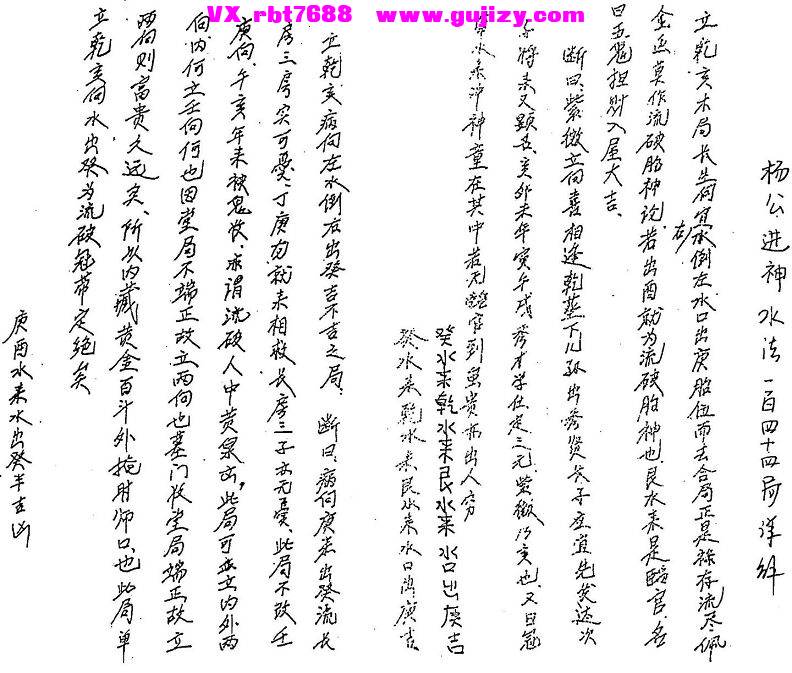 VX rbt7688 www.gujizy.com
杨公进神水法一百四十四局详解
立乾亥木局长生向宜右水倒左水口出庚胎位而去合局正是禄存流尽佩
金鱼莫作流破胎神说若出酉就为流破胎神也艮水来是临官名
曰五鬼担财入屋大吉、
断曰、紫微立向喜相逢乾葬下儿孙出秀贤长子产宜先发达次
子将来又显文、亥卯未年寅午戌秀才学仕定三元、紫微乃亥也、又曰冠
带水来冲神童在其中若无临官到虽贵亦出人穷
癸水来乾水来艮水来水口出庚吉
癸水来乾水来艮水来水口出庚吉
立乾亥病向左水倒右出癸吉不吉之局、断曰、病向庚来出癸流长
房三房实可忧、丁庚方就来相救长房三子亦无、此局不改壬
庚向、午亥年来被鬼收、求谓流破人中黄泉、此局可立内外两
向、内向立壬向何也因堂局不端正故立两向也墓门收堂局端正故立
两向则富贵久远矣、所以内藏黄金百斗外掩时师口也此局单
立乾亥向水出癸为流破冠带定绝矣
庚酉水来水出癸半吉凶